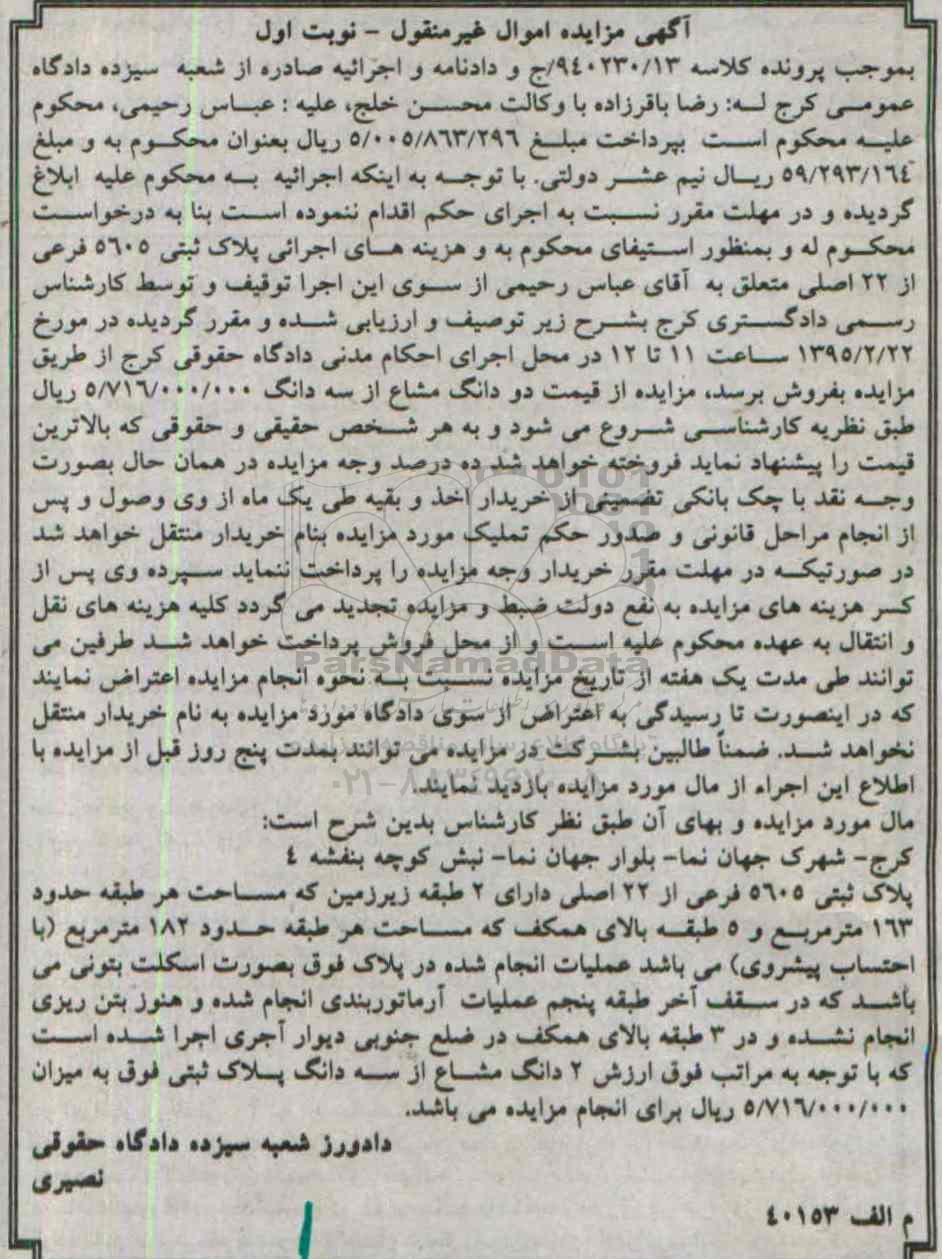 آگهی مزایده اموال غیرمنقول - نوبت اول
بموجب پرونده کلاسه ۹٤۰۲۳۰/۱۳/ج و دادنامه و اجرائیه صادره از شعبه سیزده دادگاه
عمومی کرج له: رضا باقرزاده با وکالت محسن خلج، علیه : عباس رحیمی، محکوم
علیه محکوم است بپرداخت مبلغ ۵/۰۰۵/۸٦۳/۲۹٦ ریال بعنوان محکوم به و مبلغ
۵۹/۲۹۳/۱٦٤ ریال نیم عشر دولتی. با توجه به اینکه اجرائیه به محکوم علیه ابلاغ
گردیده و در مهلت مقرر نسبت به اجرای حکم اقدام ننموده است بنا به درخواست
محکوم له و بمنظور استیفای محکوم به و هزینه های اجرائی پلاک ثبتی ۵٦۰۵ فرعی
از ۲۲ اصلی متعلق به آقای عباس رحیمی از سوی این اجرا توقیف و توسط کارشناس
رسمی دادگستری کرج بشرح زیر توصیف و ارزیابی شده و مقرر گردیده در مورخ
۱۳۹۵/۲/۲۲ ساعت ۱۱ تا ۱۲ در محل اجرای احکام مدنی دادگاه حقوقی کرج از طریق
مزایده بفروش برسد، مزایده از قیمت دو دانگ مشاع از سه دانگ ۵/۷۱٦/۰۰۰/۰۰۰ ریال
طبق نظریه کارشناسی شروع می شود و به هر شخص حقیقی و حقوقی که بالاترین
قیمت را پیشنهاد نماید فروخته خواهد شد ده درصد وجه مزایده در همان حال بصورت
وجه نقد با چک بانکی تضمینی از خریدار اخذ و بقیه طی یک ماه از وی وصول و پس
از انجام مراحل قانونی و صدور حکم تملیک مورد مزایده بنام خریدار منتقل خواهد شد
در صورتیکه در مهلت مقرر خریدار وجه مزایده را پرداخت ننماید سپرده وی پس از
کسر هزینه های مزایده به نفع دولت ضبط و مزایده تجدید می گردد کلیه هزینه های نقل
و انتقال به عهده محکوم علیه است و از محل فروش پرداخت خواهد شد طرفین می
توانند طی مدت یک هفته از تاریخ مزایده نسبت به نحوه انجام مزایده اعتراض نمایند
که در اینصورت تا رسیدگی به اعتراض از سوی دادگاه مورد مزایده به نام خریدار منتقل
نخواهد شد. ضمناً طالبین بشرکت در مزایده می توانند بمدت پنج روز قبل از مزایده با
اطلاع این اجراء از مال مورد مزایده بازدید نمایند.
مال مورد مزایده و بهای آن طبق نظر کارشناس بدین شرح است:
کرج- شهرک جهان نما- بلوار جهان نما- نبش کوچه بنفشه ٤
پلاک ثبتی ۵٦۰۵ فرعی از ۲۲ اصلی دارای ۲ طبقه زیرزمین که مساحت هر طبقه حدود
۱٦۳ مترمربع و ۵ طبقه بالای همکف که مساحت هر طبقه حدود ۱۸۲ مترمربع (با
احتساب پیشروی) می باشد عملیات انجام شده در پلاک فوق بصورت اسکلت بتونی می
باشد که در سقف آخر طبقه پنجم عملیات آرماتوربندی انجام شده و هنوز بتن ریزی
انجام نشده و در ۳ طبقه بالای همکف در ضلع جنوبی دیوار آجری اجرا شده است
که با توجه به مراتب فوق ارزش ۲ دانگ مشاع از سه دانگ پلاک ثبتی فوق به میزان
۵/۷۱٦/۰۰۰/۰۰۰ ریال برای انجام مزایده می باشد.
دادورز شعبه سیزده دادگاه حقوقی
نصیری
م الف ٤۰۱۵۳
ParsNamadData